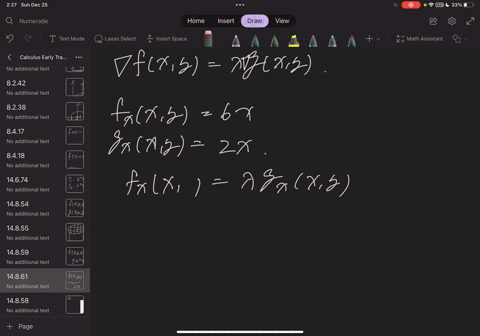 2:27 Sun Dec 25
33%
Numerade
Home Insert Draw View
Text Mode Lasso Select Insert Space Math Assistant
Calculus Early Tra...
No additional text
8.2.42
No additional text
8.2.38
No additional text
8.4.17
No additional text
8.4.18
No additional text
14.6.74
No additional text
14.8.54
No additional text
14.8.55
No additional text
14.8.59
No additional text
14.8.61
No additional text
14.8.58
No additional text
+ Page
∇f(x,y) = λ∇g(x,y).
fx(x,y) = 6x
gx(x,y) = 2x.
fx(x, ) = λ gx(x,y)